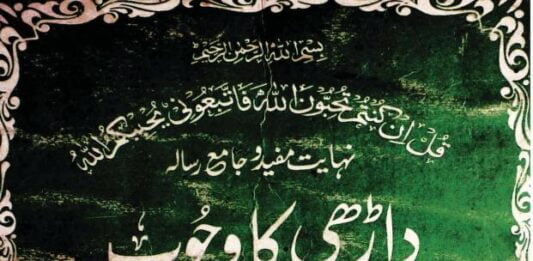 بسم اللہ الرحمن الرحیم
قُلْ اِنْ کُنْتُمْ تُحِبُّوْنَ اللّٰهَ فَاتَّبِعُوْنِیْ یُحْبِبْکُمُ اللّٰهُ
نہایت مفید و جامع رسالہ
داڑھی کا وجُوب